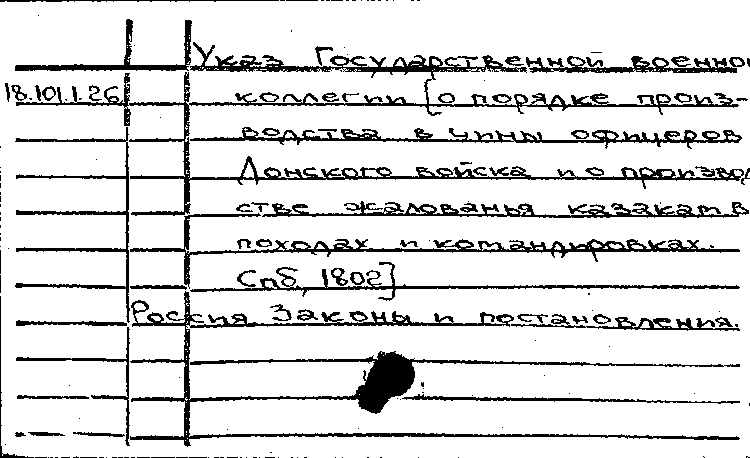 Указ Государственной военно
18.101.1.26 коллегии [о порядке произ-
водства в чины офицеров
Донского войска и о производ
стве жалованья казакам в
походах и командировках.
Спб, 1802]
Россия Законы и постановления.